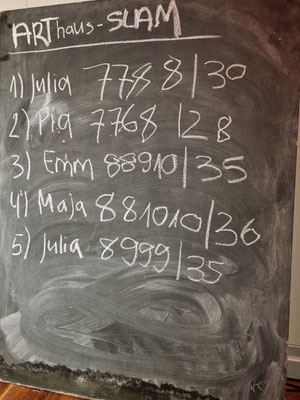 ARThaus-SLAM
1) Julia 7788/30
2) Pia 7768/28
3) Emm 88910/35
4) Maja 881010/36
5) Julia 8999/35